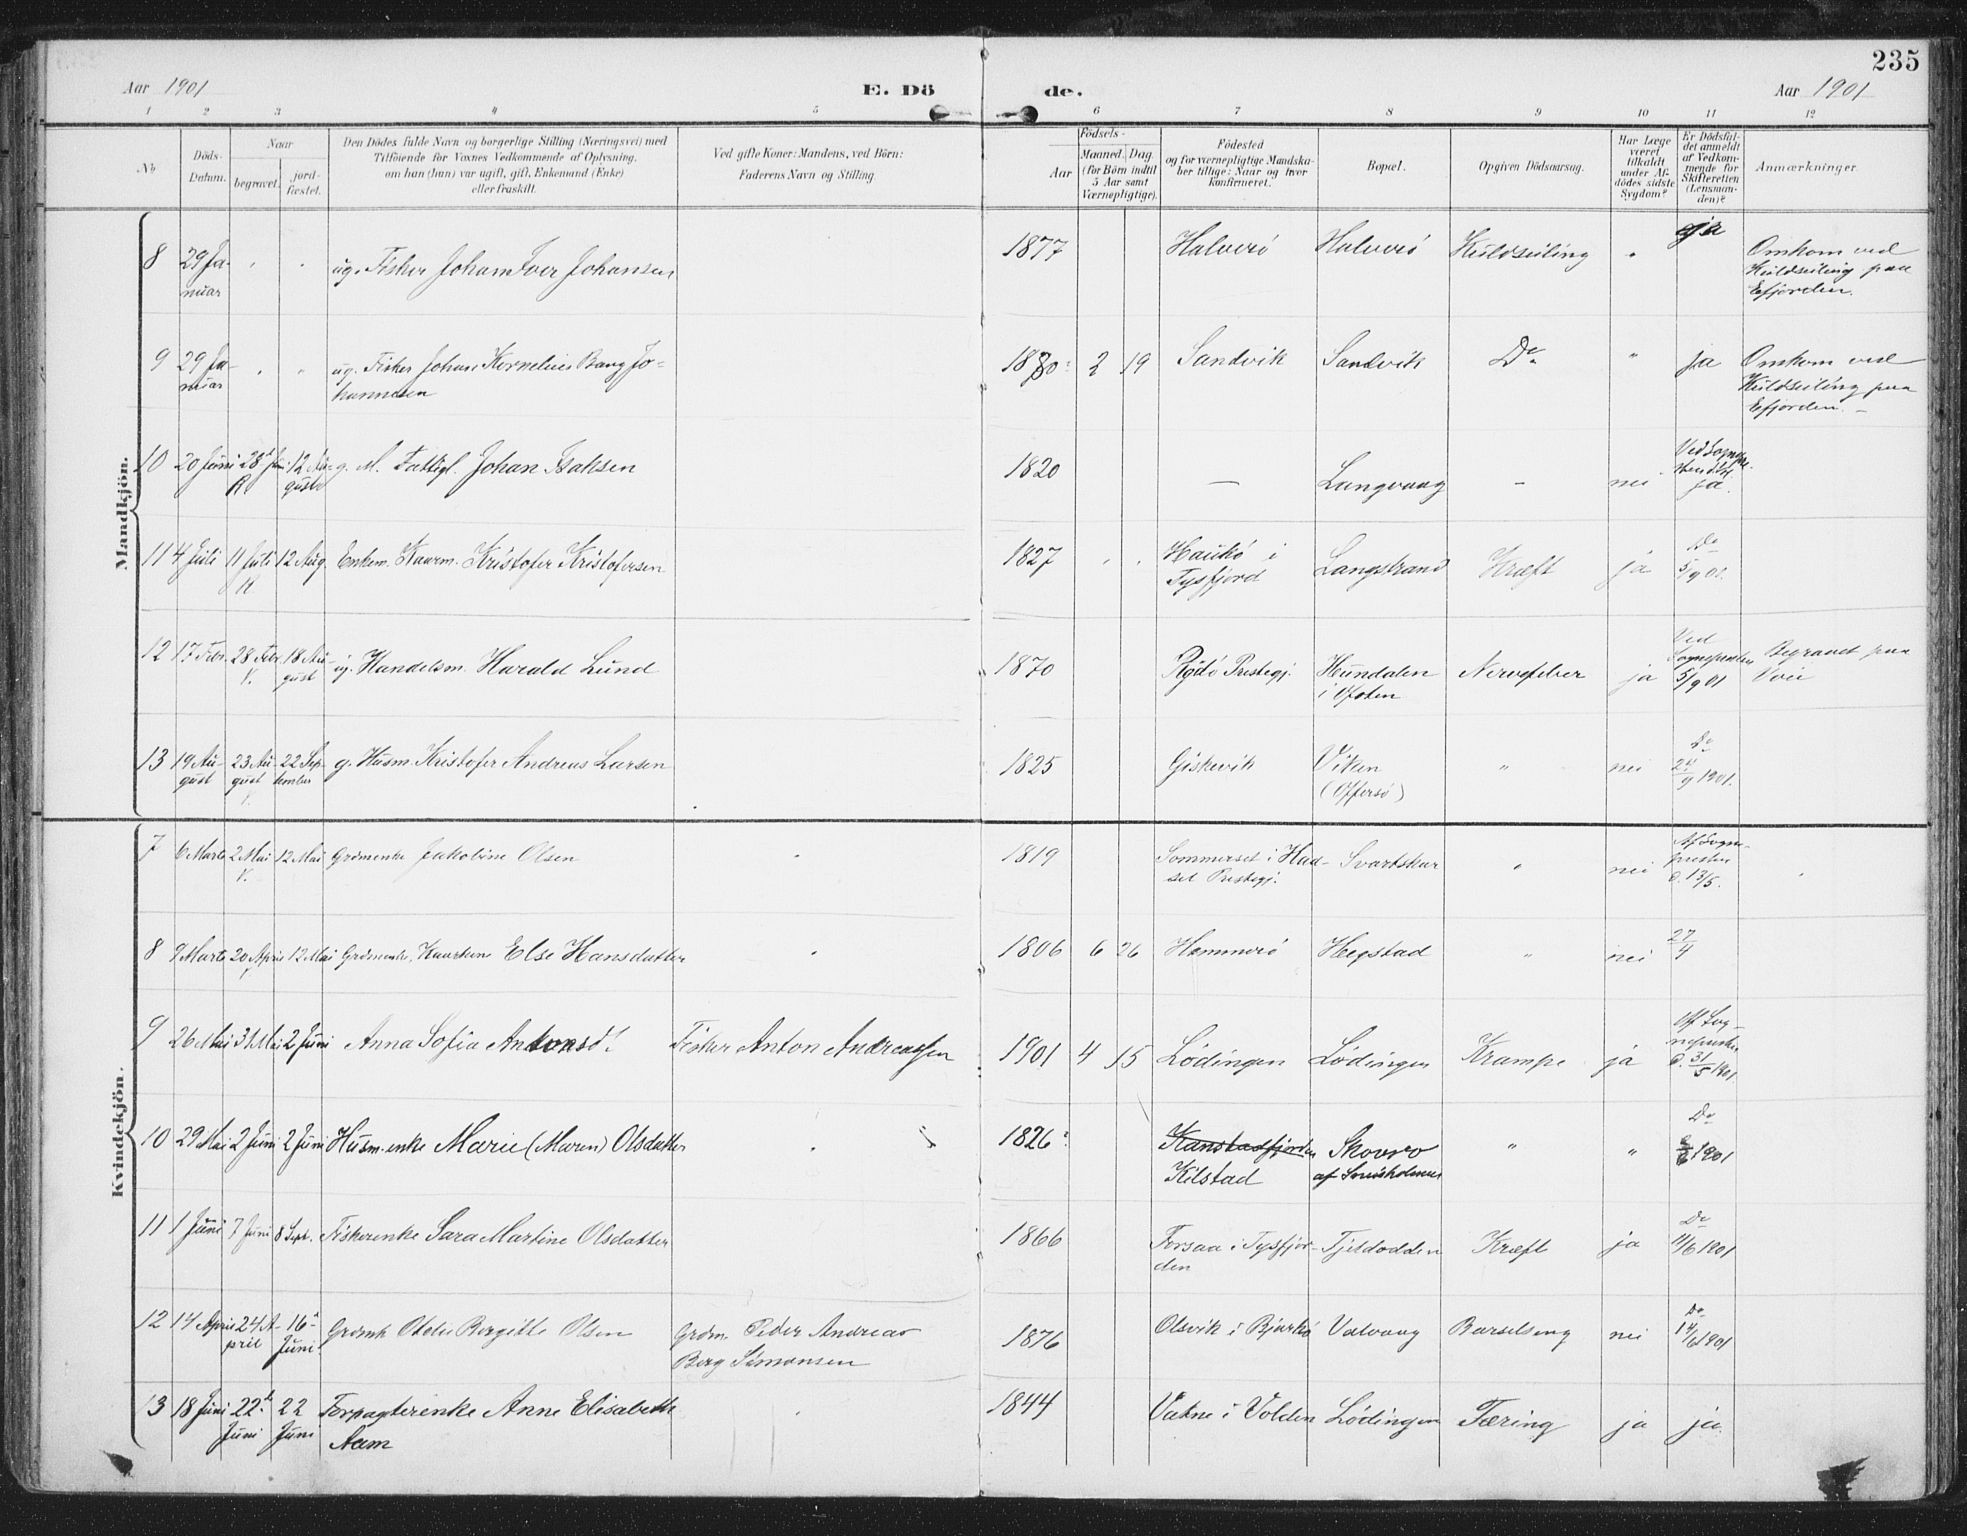 235
Aar 1901 E. Dö de. Aar 1901
1 2 3 4 5 6 7 8 9 10 11 12
No
Döds-
Datum.
Naar
begravet.
jord-
fæstet.
Den Dödes fulde Navn og borgerlige Stilling (Næringsvei) med
Tilföiende for Voxnes Vedkommende af Oplysning,
om han (hun) var ugift, gift, Enkemand (Enke)
eller fraskilt.
Ved gifte Koner: Mandens, ved Börn:
Faderens Navn og Stilling.
Födsels-
Aar
Maaned. Dag
(for Börn indtil
5 Aar samt
Værnepligtige).
Födested
og for værnepligtige Mandska-
ber tillige: Naar og hvor
konfirmeret.
Bopæl.
Opgiven Dödsaarsag.
Har Læge
været
tilkaldt
under Af-
dödes sidste
Sygdom?
Er Dödsfal-
det anmeldt
af Vedkom-
mende for
Skifteretten
(Lensman-
den)?
Anmærkninger.
Mandkjön.
8 29 Ja-
nuar
ug. Fisker Johan Iver Johansen
1877 Halverö Halverö Kuldseiling " ja
Omkom ved
Kuldseiling paa
Efjorden.
9 29 Ja-
nuar
ug. Fisker Johan Kornelius Bang Jo-
hannesen
1880 2 19 Sandvik Sandvik Do " ja
Omkom ved
Kuldseiling paa
Efjorden. –
10 20 Juni 28 Juni R 12 Au-
gust
g. M. Fattigl. Johan Isaksen
1820 — Langvaag – nei
ja.
11 4 Juli 11 Juli R. 12 Aug. Enkem. Kaarm. Kristofer Kristofersen
1827 Haukö i
Tysfjord
Langstrand Kræft ja Do
5/9 01.
12 17 Febr. 28 Febr. V. 18 Au-
gust
ug. Handelsm. Harald Lund
1870 Rödö Prestegj. Hundalen
i Ofoten
Nervefeber ja
Ved
Sognepresten
5/9 01
Begravet paa
13 19 Au-
gust
23 Au-
gust
V.
22 Sep-
tember
g. Husm. Kristofer Andreas Larsen
1825 Giskevik Viken
(Offersö)
" nei Do
24/9 1901.
Kvindekjön.
7 6 Marts 2 Mai V. 12 Mai Grdmenke Jakobine Olsen
1819 Sommerset i Had-
sel Prestegj.
Svartskar " nei
Af Sogne-
presten
d. 13/5.
8 9 Marts 20 April 12 Mai Grdmenke, Kaarkone Else Hansdatter
1806 6 26 Hammerö Hegstad " nei 27/4
9 26 Mai 31 Mai 2 Juni Anna Sofia Antonsd. Fisker Anton Andreassen
1901 4 15 Lödingen Lödingen Krampe ja
Af Sog-
nepresten
d. 31/5 1901.
10 29 Mai 2 Juni 2 Juni Husm.enke Marie (Maren) Olsdatter
1826 Kanstadfjorden
Kilstad
Skovro
" " Do
1901
11 1 Juni 7 Juni 8 Sept. Fiskerenke Sara Martine Olsdatter
1866 Forsaa i Tysfjor-
den
Tjeldodden Kræft ja Do
11/6 1901
12 14 April 24 A-
pril
16
Juni
Grdmk Otelie Birgitte Olsen Grdm. Peder Andreas
Berg Simonsen
1876 Olsvik i Bjarkö Valvaag Barselseng nei Do
14/6 1901
13 18 Juni 22
Juni
22
Juni
Forpagterenke Anne Elisabeth
Aam
1844 Vatne i Volden Lödingen Tæring ja ja.